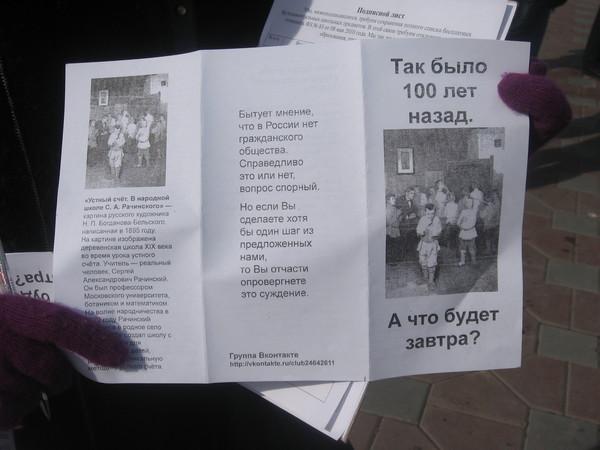 Подписной лист
«Устный счёт. В народной
школе С. А. Рачинского» —
картина русского художника
Н. П. Богданова-Бельского,
написанная в 1895 году.
На картине изображена
деревенская школа XIX века
во время урока устного
счёта. Учитель — реальный
человек, Сергей
Александрович Рачинский.
Он был профессором
Московского университета,
ботаником и математиком.
На волне народничества в
году Рачинский
в родное село
создал школу с
для
детей,
счёта.
Бытует мнение,
что в России нет
гражданского
общества.
Справедливо
это или нет,
вопрос спорный.
Но если Вы
сделаете хотя
бы один шаг из
предложенных
нами,
то Вы отчасти
опровергнете
это суждение.
Группа Вконтакте
http://vkontakte.ru/club24642611
Так было
100 лет
назад.
А что будет
завтра?